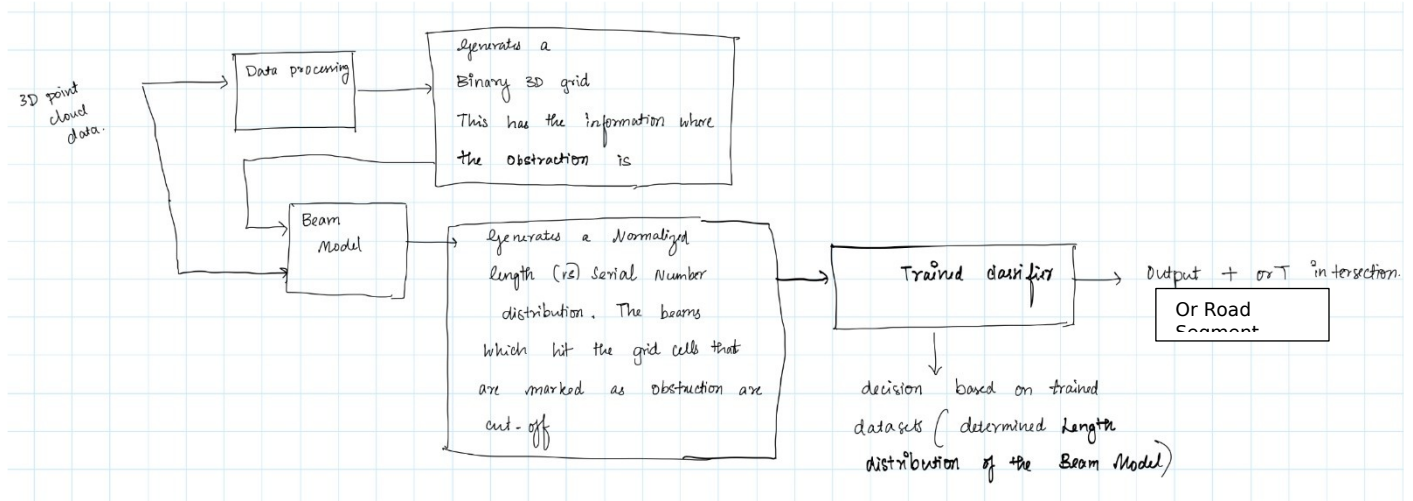 3D point
cloud
data.
Data processing
Generates a
Binary 3D grid
This has the information where
the obstraction is
Beam
Model
Generates a Normalized
length (vs) Serial Number
distribution. The beams
which hit the grid cells that
are marked as obstruction are
cut-off
Trained classifier
Output + or T intersection.
Or Road
Segment
decision based on trained
datasets (determined Length
distribution of the Beam Model)